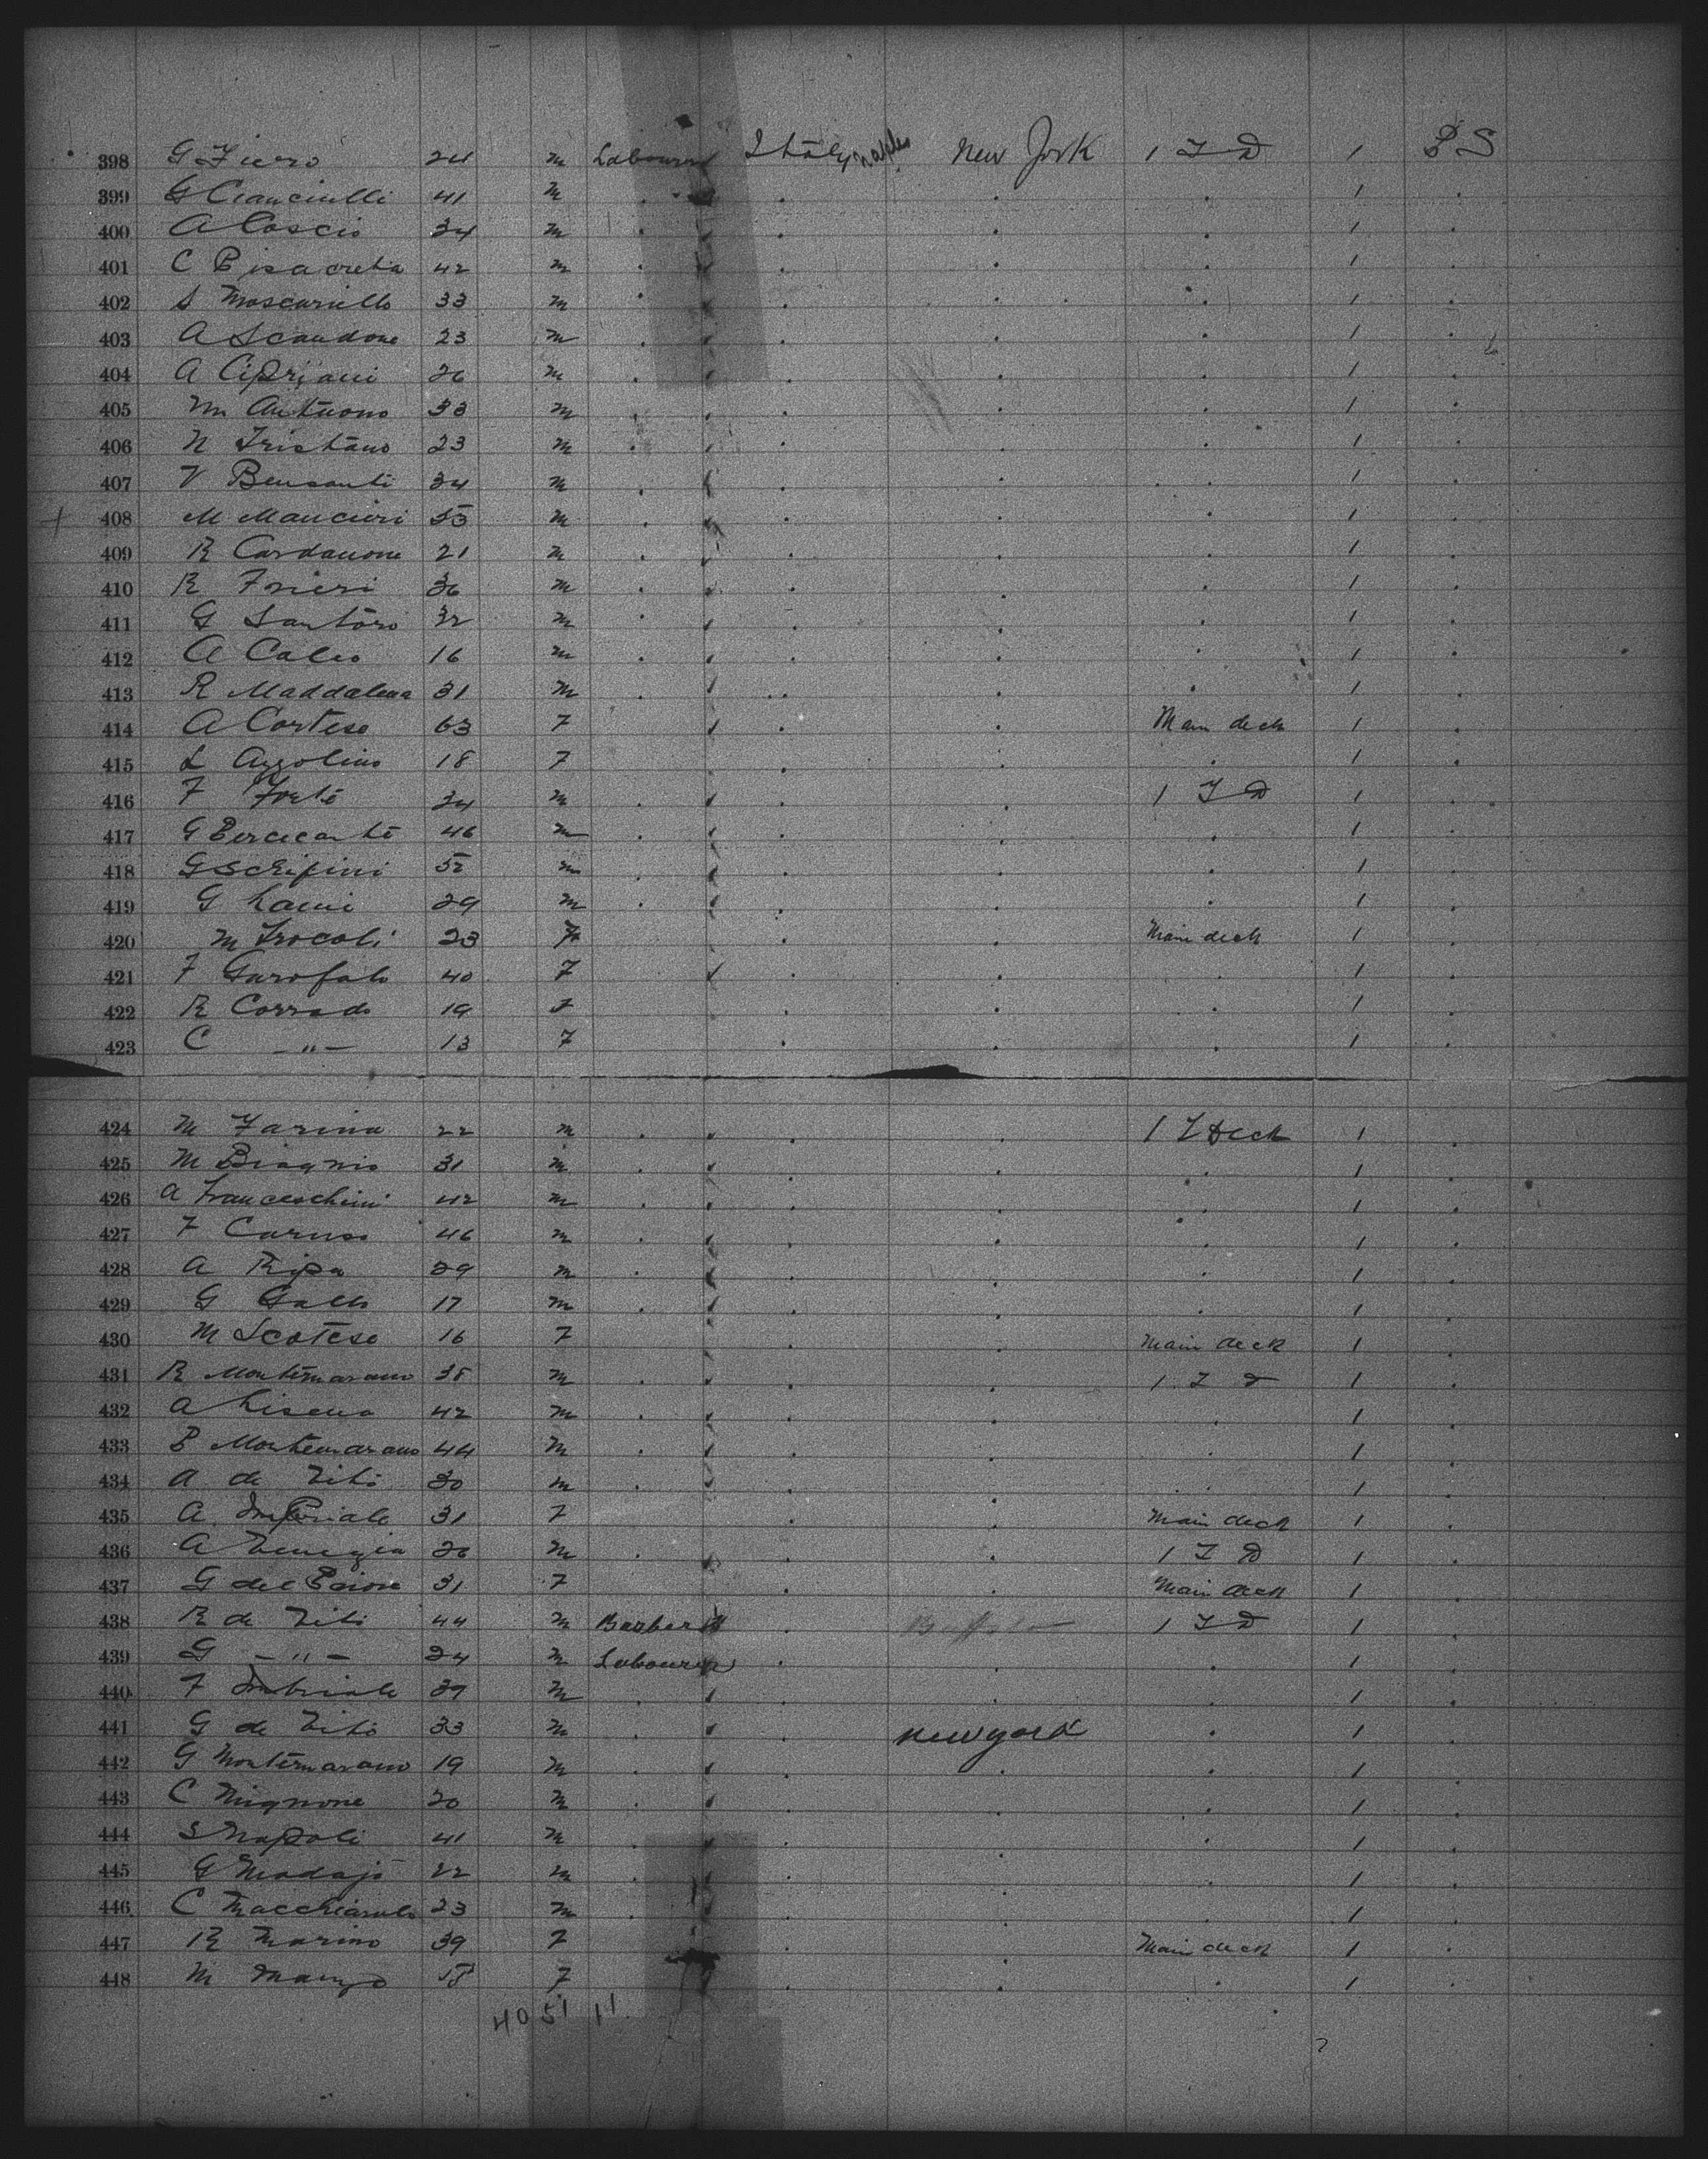 398 G Fiero 24 m Labourer Italy Naples New York 1 T D 1 P S
399 G Cianciulli 41 m . . . . 1 .
400 A Coscio 34 m . . . . 1 .
401 C Pisacreta 42 m . . . . 1 .
402 S Moscariello 33 m . . . . 1 .
403 A Scandone 23 m . . . . 1 .
404 A Cipriani 26 m . . . . 1 .
405 M Antuono 33 m . . . . 1 .
406 N Tristano 23 m . . . . 1 .
407 V Bensanti 34 m . . . . 1 .
408 M Mancieri 55 m . . . . 1 .
409 R Cardamone 21 m . . . . 1 .
410 R Frieri 36 m . . . . 1 .
411 G Santoro 32 m . . . . 1 .
412 A Caleo 16 m . . . . 1 .
413 R Maddalena 31 m . . . . 1 .
414 A Cortese 63 F . . Main deck 1 .
415 L Azzolino 18 F . . . 1 .
416 F Forte 24 m . . . 1 T D 1 .
417 G 46 m . . . . 1 .
418 G Scrifini 52 m . . . . 1 .
419 G Laini 29 m . . . . 1 .
420 M Trocoli 23 F . . Main deck 1 .
421 F Garofalo 40 F . . . 1 .
422 R Corrado 19 F . . . 1 .
423 C - " - 13 F . . . 1 .
424 M Farina 22 m . . . 1 T Deck 1 .
425 M Biagnio 31 m . . . . 1 .
426 A Franceschini 42 m . . . . 1 .
427 F Caruso 46 m . . . . 1 .
428 A Ripa 29 m . . . . 1 .
429 G Gallo 17 m . . . . 1 .
430 M Scotese 16 F . . Main deck 1 .
431 R Montemarano 38 m . . . 1 T D 1 .
432 A Lisena 42 m . . . . 1 .
433 P Montemarano 44 m . . . . 1 .
434 A de Tito 30 m . . . . 1 .
435 A Imperiale 31 F . . Main deck 1 .
436 A Venezia 26 m . . . 1 T D 1 .
437 G del Priore 31 F . . Main deck 1 .
438 R de Tito 44 m Barber . Buffalo 1 T D 1 .
439 G - " - 24 m Labourer . . . 1 .
440 F Imbriale 37 m . . . . 1 .
441 G de Tito 33 m . . New York . 1 .
442 G Montemarano 19 m . . . . 1 .
443 C Mignone 20 m . . . . 1 .
444 S Napoli 41 m . . . . 1 .
445 G Modajo 22 m . . . . 1 .
446 C Macchiarulo 23 m . . . . 1 .
447 R Marino 39 F . . Main deck 1 .
448 M Manzo F . . . 1 .
40 51 11